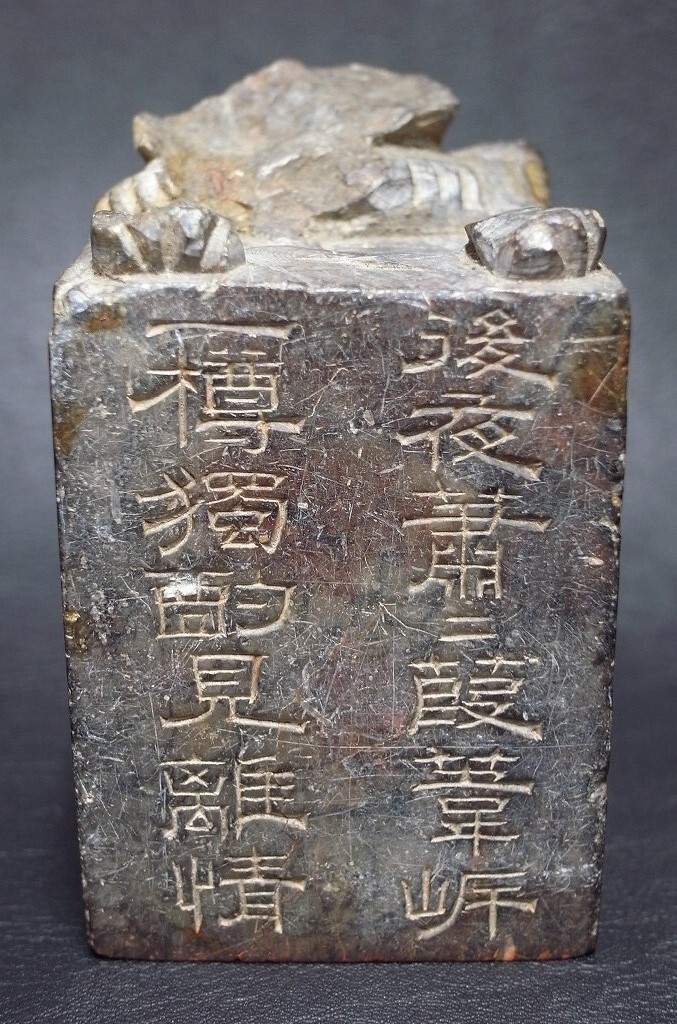 後夜蕭二葭葦岸
一樽獨酌見離情